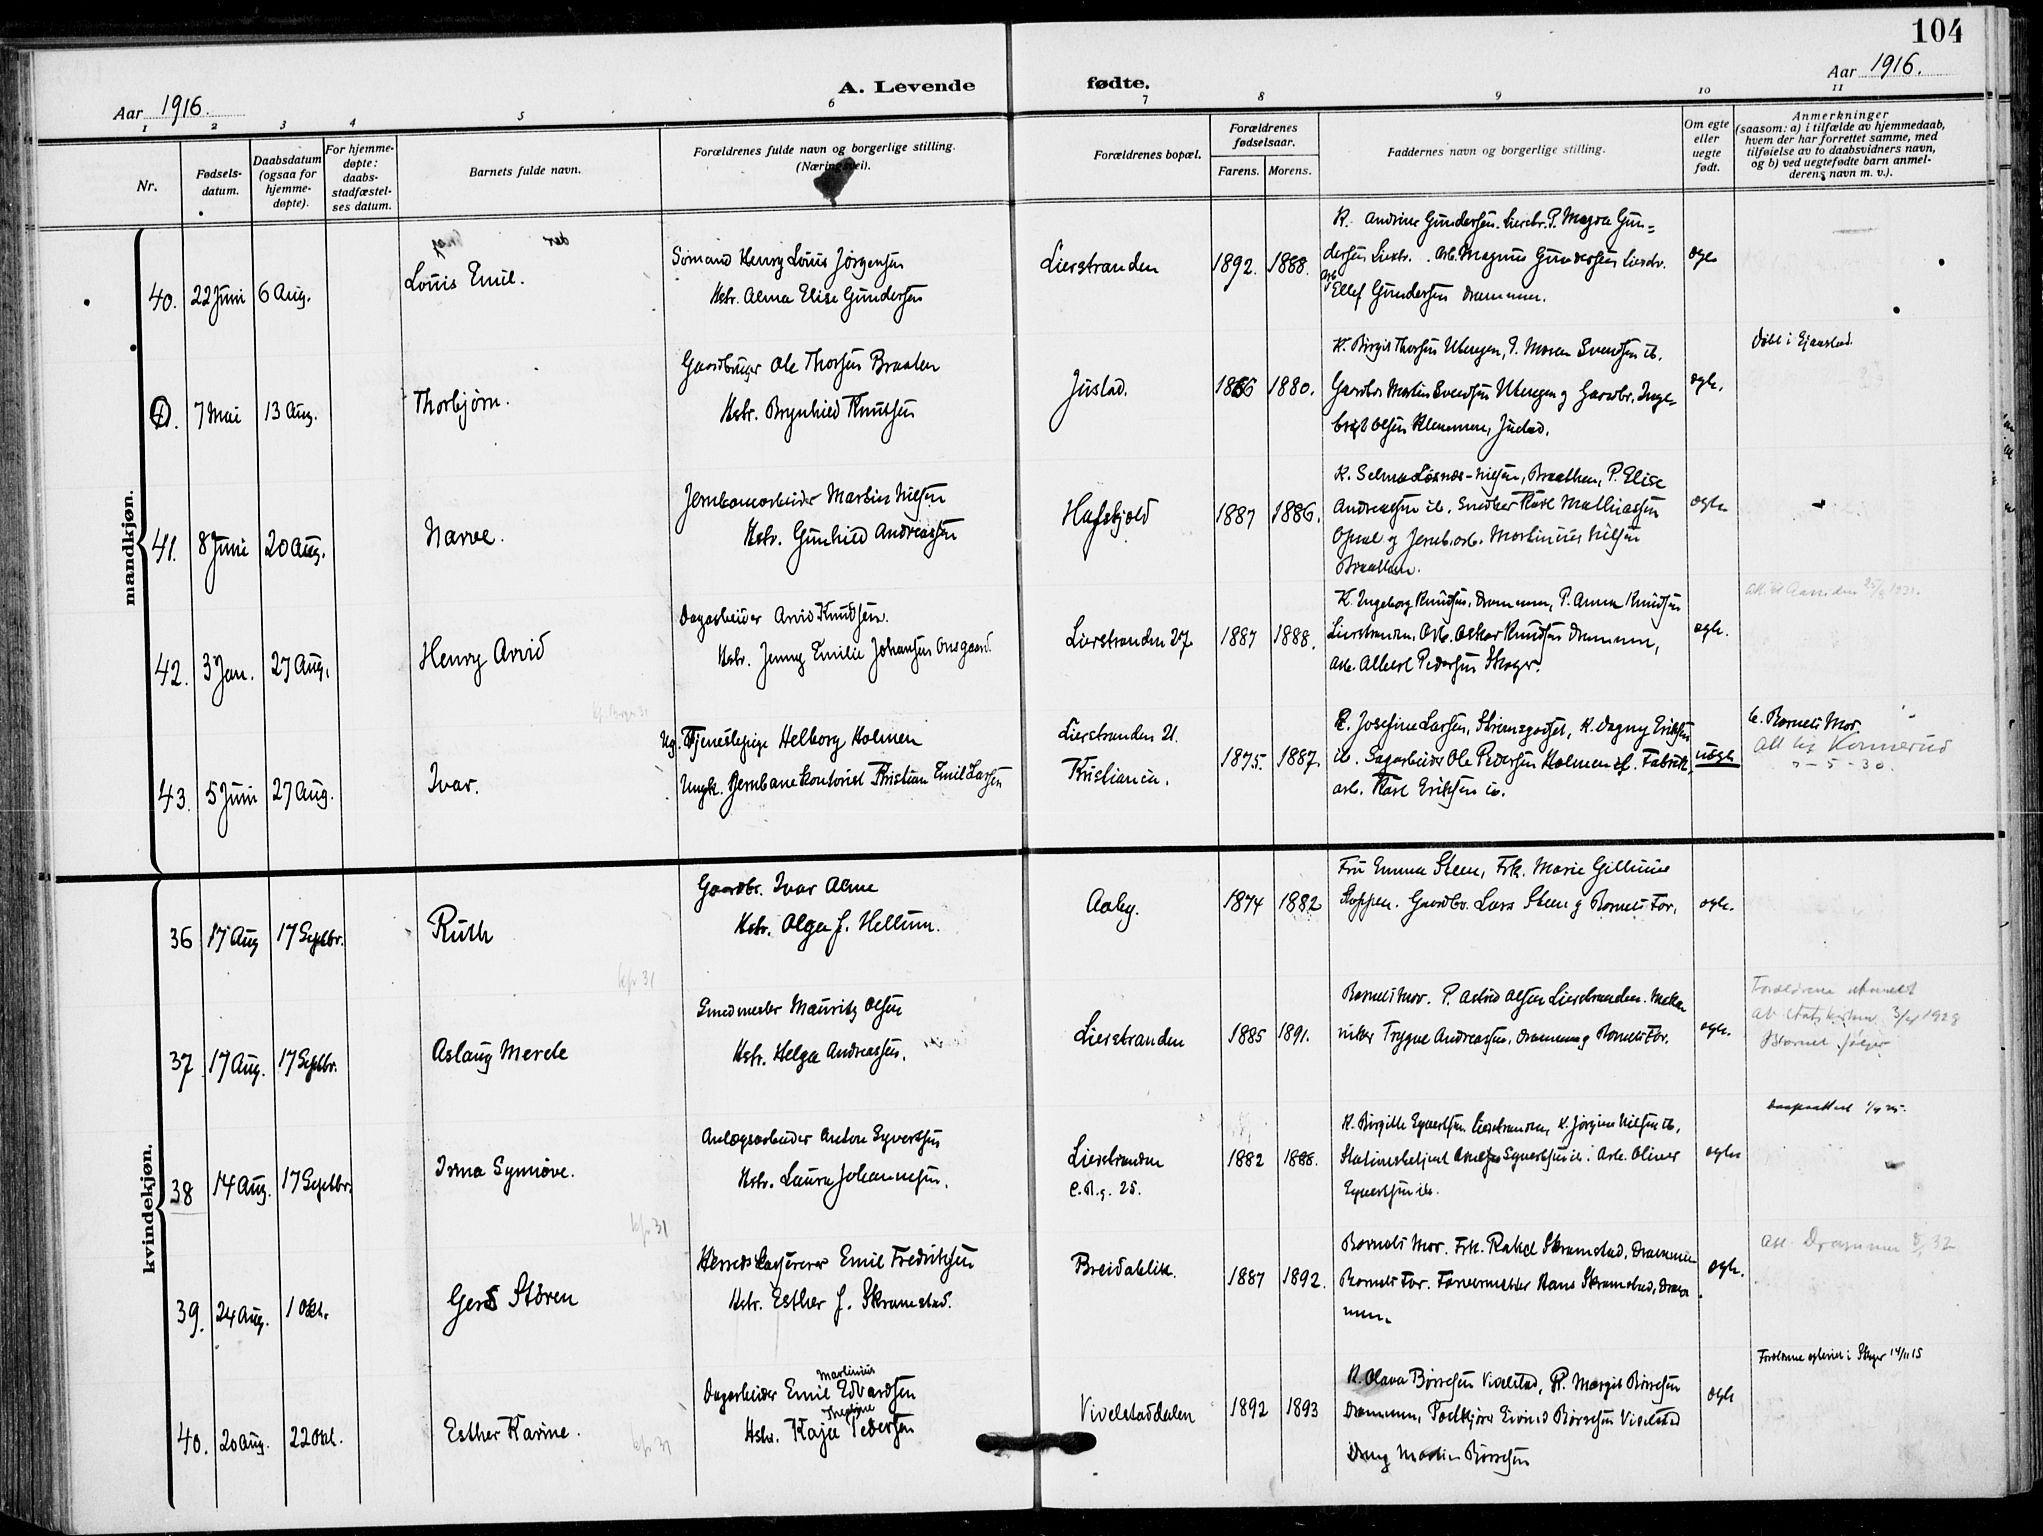 104
Aar 1916.
A. Levende fødte.
Aar 1916.
1 2 3 4 5 6 7 8 9 10 11
Nr.
Fødsels-
datum.
Daabsdatum
(ogsaa for
hjemme-
døpte).
For hjemme-
døpte:
daabs-
stadfæstel-
ses datum.
Barnets fulde navn.
Forældrenes fulde navn og borgerlige stilling.
(Næringsvei).
Forældrenes bopæl.
Forældrenes
fødselsaar.
Farens. Morens.
Faddernes navn og borgerlige stilling.
Om egte
eller
uegte
født.
Anmerkninger
(saasom: a) i tilfælde av hjemmedaab,
hvem der har forrettet samme, med
tilføielse av to daabsvidners navn,
og b) ved uegtefødte barn anmel-
derens navn m. v.).
mandkjøn.
40. 22 Juni 6 Aug.
Louis Emil.
Sømand Henry Louis Jørgensen
Hstr. Alma Elise Gundersen
Lierstranden
1892. 1888.
K. Andrine Gundersen Lierstr. P. Magda Gun=
dersen Lierstr. Arb. Magnus Gundersen Lierstr.
Arb. Ellef Gundersen Drammen.
egte
41. 7 Mai 13 Aug.
Thorbjørn.
Gaardbruger Ole Thorsen Braaten
Hstr. Brynhild Knutsen
Justad.
1886 1880.
K. Birgit Thorsen Ulvegen, P. Maren Svendsen ib.
Gaardbr. Martin Svendsen Ulvegen og Gaardbr. Inge=
brigt Olsen Klemmen, Justad.
egte.
Døbt i Sjaastad.
41. 8 Juni 20 Aug.
Narve.
Jernbanearbeider Martin Nilsen
Hstr. Gunhild Andreassen
Hafskjold
1887 1886.
K. Selma Løsnæs-Nilsen, Braathen, P. Elise
Andreassen ib. Snedker Karl Mathiassen
Opsal og Jernb.arb. Martinius Nilsen
Braathen.
egte
42. 3 Jan. 27 Aug.
Henry Arvid
Dagarbeider Arvid Knudsen.
Hstr. Jenny Emilie Johansen Onsgaard.
Lierstranden 27
1887 1888.
K. Ingeborg Knudsen, Drammen, P. Anna Knudsen
Lierstranden, Arb. Oskar Knudsen Drammen,
Arb. Albert Pedersen Skoger.
egte.
43. 5 Juni 27 Aug.
Ivar.
Ug. Tjenestepige Helborg Holmen
Ungk. Jernbanekontorist Kristian Emil Larsen
Lierstranden 21.
Kristiania.
1875. 1887.
K. Josefine Larsen, Strømsgodset, K. Dagny Eriksen
ib. Sagarbeider Ole Pedersen Holmen ib. Fabrik
arb. Karl Eriksen ib.
uegte
b. Barnets Mor.
Att. bg Konnerud
- 5 - 30.
kvindekjøn.
36 17 Aug 17 Septbr.
Ruth
Gaardbr. Ivar Alme
Hstr. Olga f. Hellum.
Aaby.
1874 1882
Fru Emma Steen, Frk. Marie Gellinius
Koppen. Gaardbr. Lars Steen og Barnets Far.
egte.
kfr 31
37 17 Aug. 17 Septbr.
Aslaug Merete
Smedmester Mauritz Olsen
Hstr. Helga Andreassen.
Lierstranden
1885 1891.
Barnets Mor. P. Astrid Olsen Lierstranden. Meka
niker Trygve Andreassen, Drammen og Barnets Far.
egte.
Forældrene utmeldt
av Statskirken 3/4 1928
Barnet følger
38 14 Aug. 17 Septbr.
Irma Synnøve.
Anlægsarbeider Anton Syvertsen
Hstr. Laura Johannesen.
Lierstranden
C.R.g. 25.
1882 1888.
K. Birgitte Syvertsen Lierstranden, K. Jørgine Nilsen ib.
Stationsbetjent Syvertsen ib. Arb. Oliver
Syvertsen ib.
egte
kfr 31
39. 24 Aug. 1 Okt.
Gerd Støren
Herredskasserer Emil Fredriksen
Hstr. Esther f. Skramstad.
Breidablik.
1887 1892.
Barnets Mor. Frk. Rakel Skramstad, Drammen
Barnets Far. Farvermester Hans Skramstad, Dram
men.
egte.
Att. Drammen 32
40. 20 Aug. 22 Okt.
Esther Karine.
kfr 31
Martinius
Dagarbeider Emil Edvardsen
Hstr. Kaja Pedersen
Vivelstaddalen
1892 1893
K. Olava Børresen Vivelstad, P. Margit Børresen
Drammen, Eivind Børresen Vivelstad
Dreng Martin Børresen
egte
Forældrene egteviet i Skoger 14/11 15